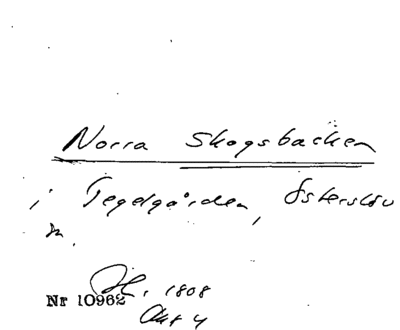 Norra Skogsbacken
i Tegelgården, Österslöv
sn.
H. 1808
Nr 10962
Akt 4